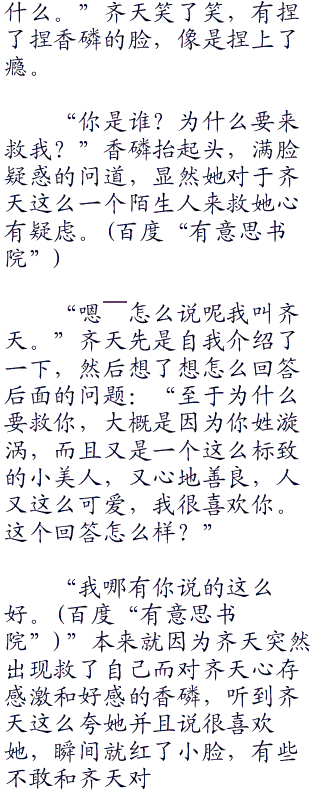 什么。” 齐天笑了笑，有捏
了捏香磷的脸，像是捏上了
瘾。
“你是谁？为什么要来
救我？” 香磷抬起头，满脸
疑惑的问道，显然她对于齐
天这么一个陌生人来救她心
有疑虑。(百度“有意思书
院”)
“嗯――怎么说呢我叫齐
天。” 齐天先是自我介绍了
一下，然后想了想怎么回答
后面的问题：“至于为什么
要救你，大概是因为你姓漩
涡，而且又是一个这么标致
的小美人，又心地善良，人
又这么可爱，我很喜欢你。
这个回答怎么样？”
“我哪有你说的这么
好。(百度“有意思书
院”)” 本来就因为齐天突然
出现救了自己而对齐天心存
感激和好感的香磷，听到齐
天这么夸她并且说很喜欢
她，瞬间就红了小脸，有些
不敢和齐天对